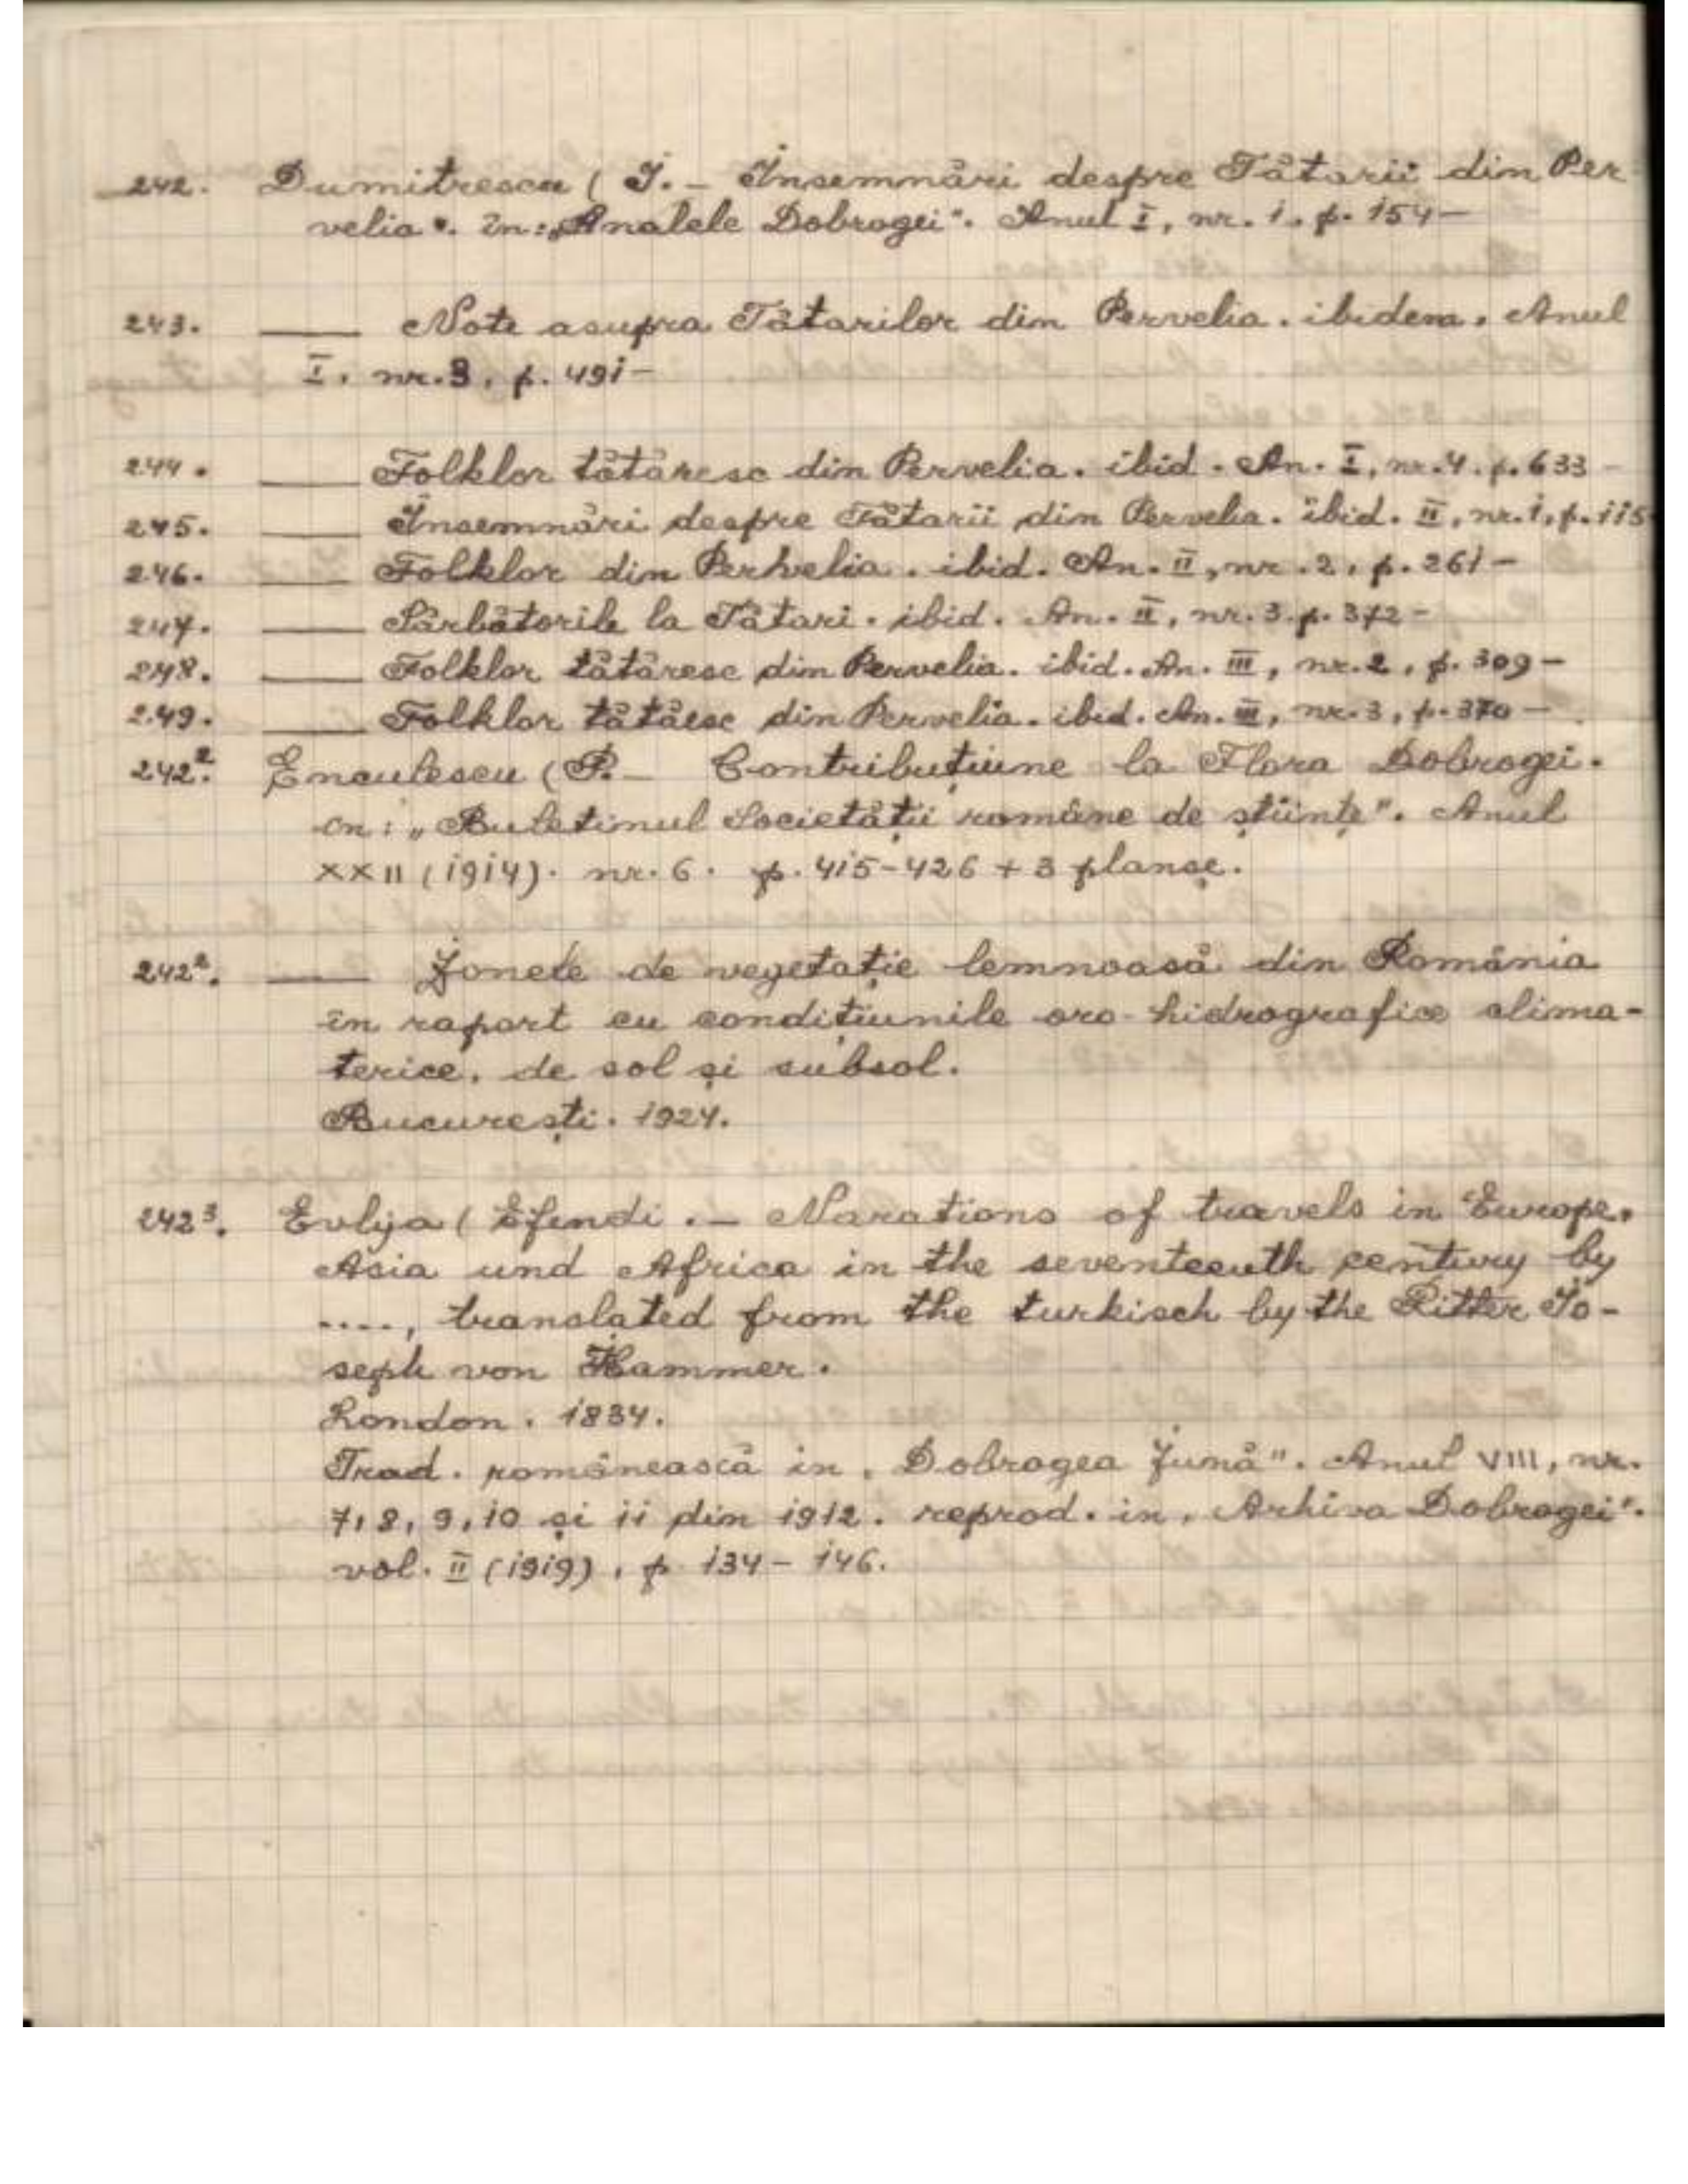 242. Dumitrescu ( I. - Însemnări despre Tătarii din Per-
velia". în: „Analele Dobrogei". Anul I, nr. 1. p. 154 -
243. ____ Note asupra Tătarilor din Pervelia. ibidem. Anul
I. nr. 3. p. 491 -
244. ____ Folklor tătăresc din Pervelia. ibid. An. I, nr. 4. p. 633 -
245. ____ Însemnări despre Tătarii din Pervelia. ibid. II, nr. 1, p. 115
246. ____ Folklor din Perhvelia. ibid. An. II, nr. 2, p. 261 -
247. ____ Sărbătorile la Tătari. ibid. An. II, nr. 3. p. 372 -
248. ____ Folklor tătăresc din Pervelia. ibid. An. III, nr. 2, p. 309 -
249. ____ Folklor tătăesc din Pervelia. ibid. An. III, nr. 3, p. 370 -
242². Enculescu ( P. - Contribuțiune la Flora Dobrogei.
în: „Buletinul Societății române de științe". Anul
XXII (1914). nr. 6. p. 415-426 + 3 planșe.
242². ____ Zonele de vegetație lemnoasă din România
în raport cu condițiunile oro-hidrografice clima-
terice, de sol și subsol.
București. 1924.
242³. Evlija ( Efendi. - Narations of travels in Europe,
Asia und Africa in the seventeenth century by
...., translated from the turkisch by the Ritter Jo-
seph von Hammer.
London. 1834.
Trad. românească in „Dobrogea Jună". Anul VIII, nr.
7, 8, 9, 10 și 11 din 1912. reprod. in „Arhiva Dobrogei".
vol. II (1919), p. 134 - 146.